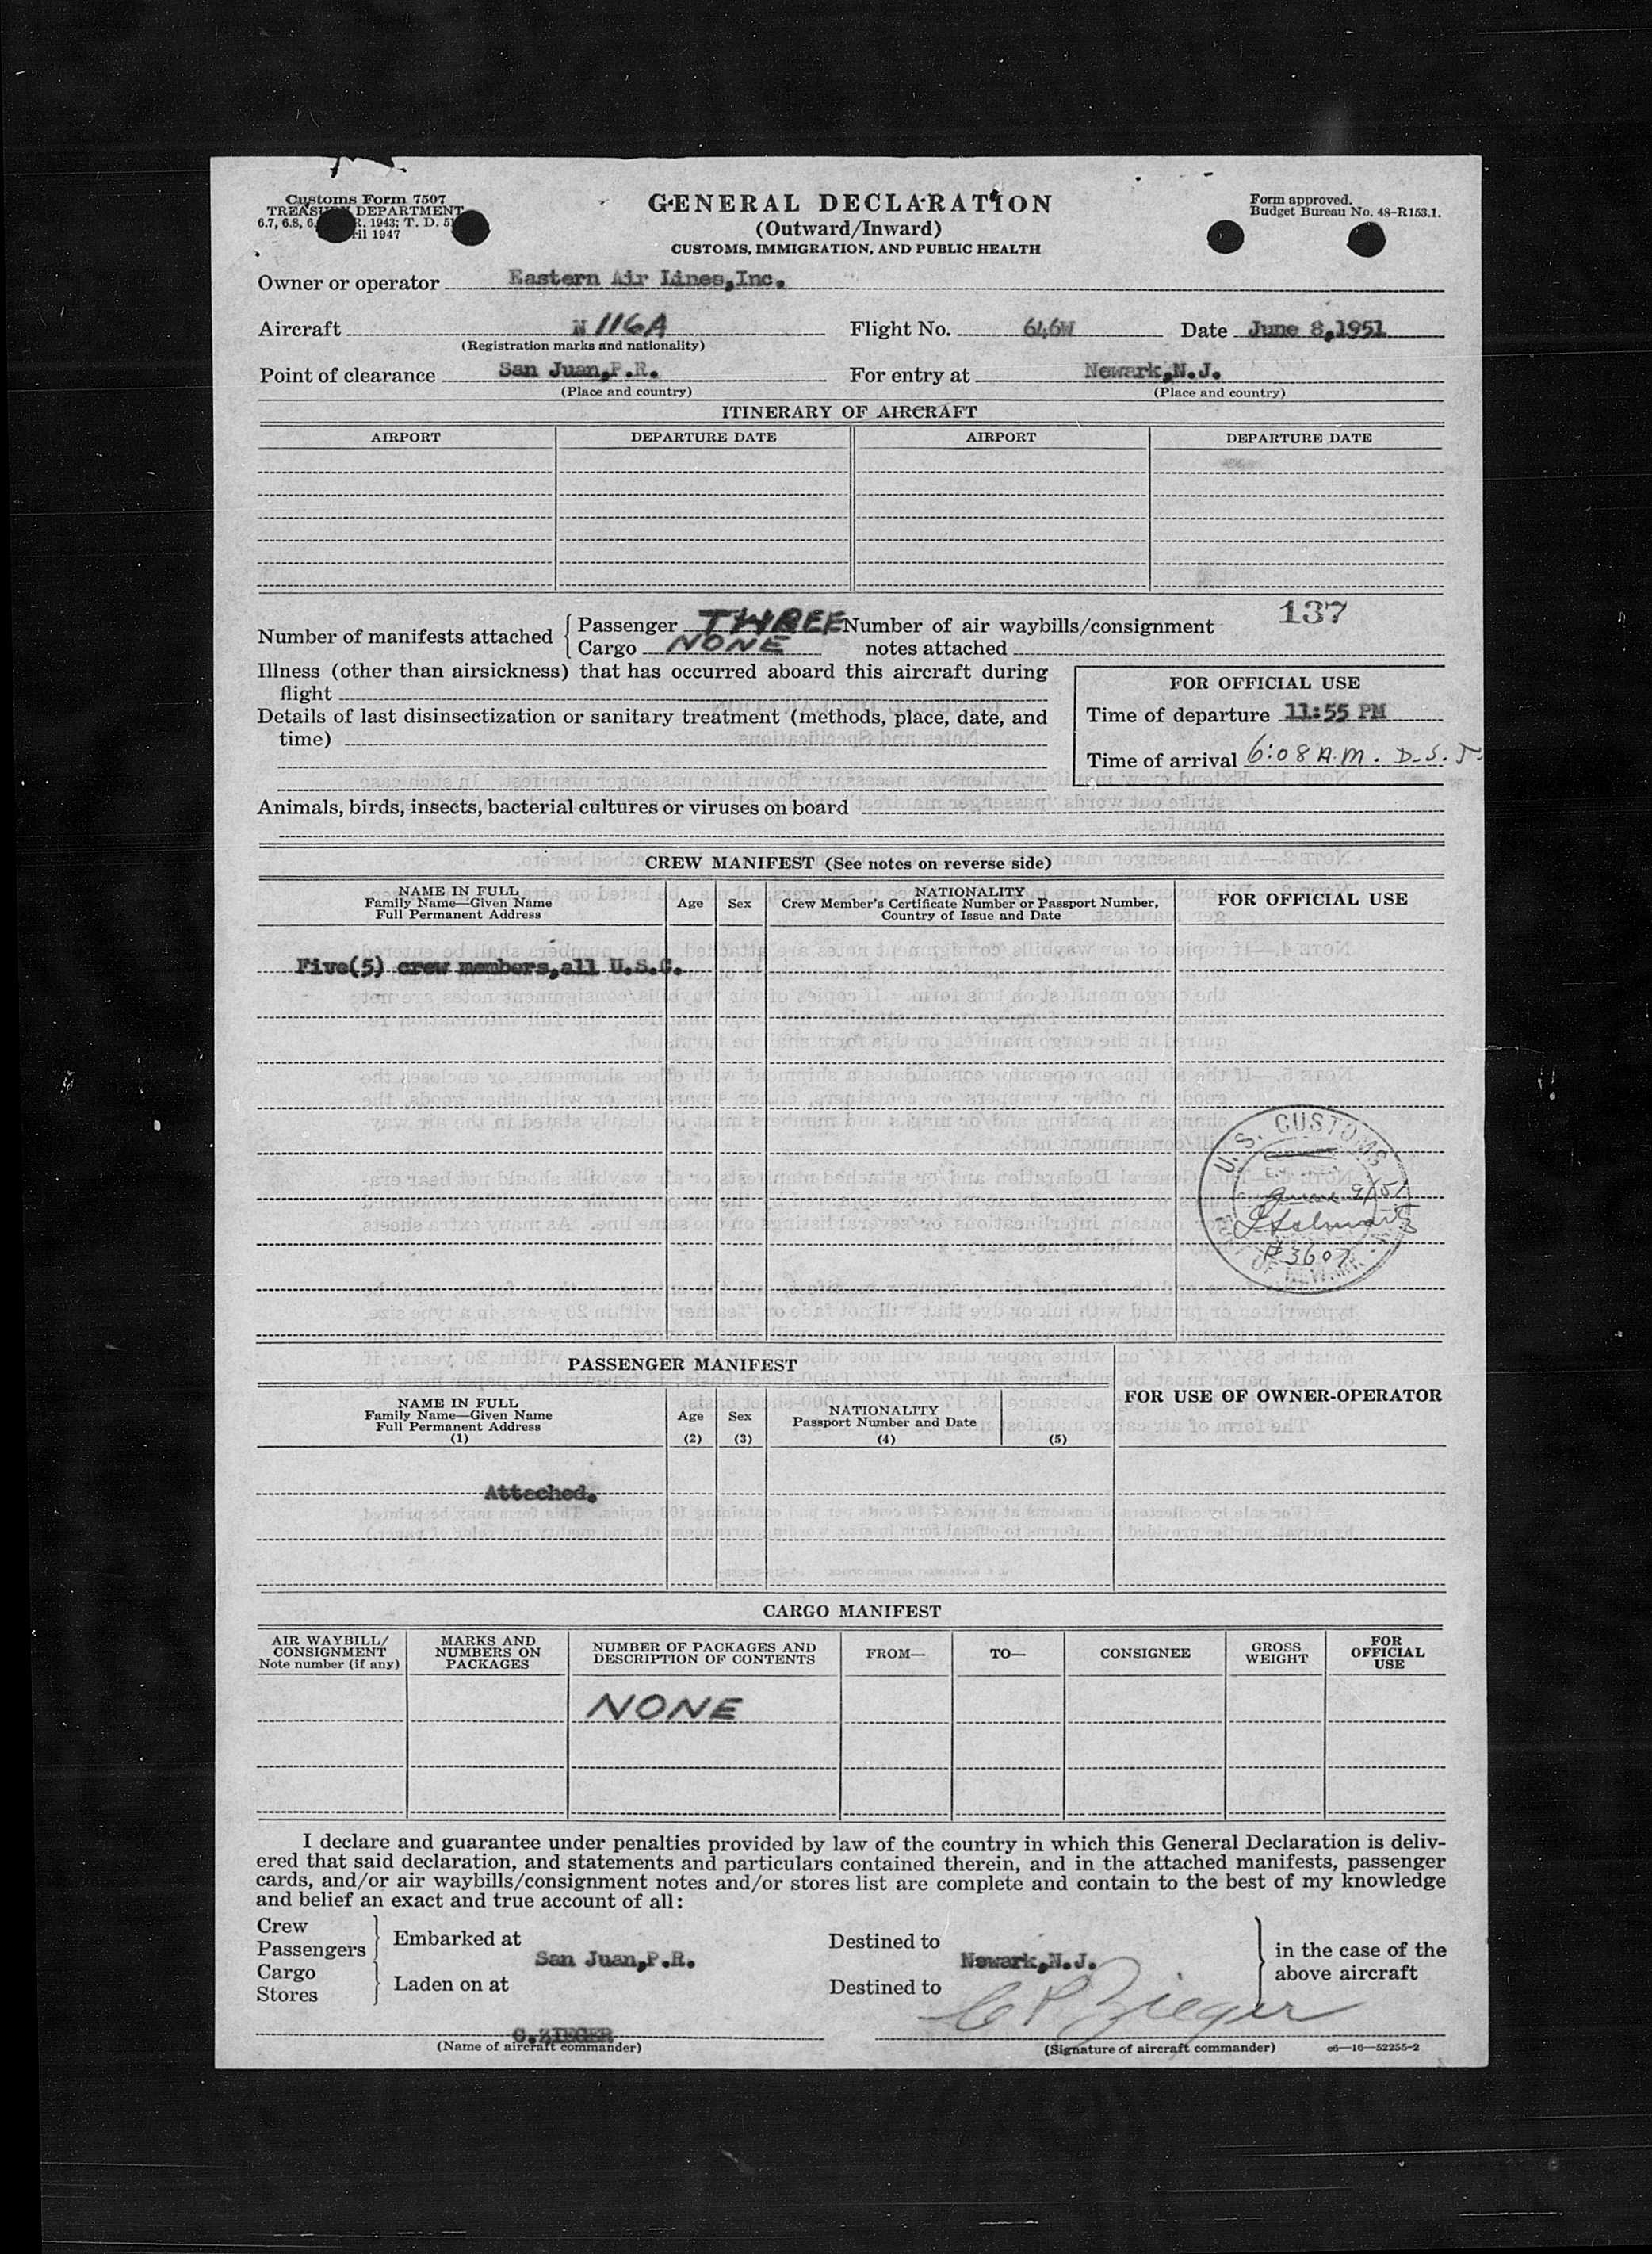 Customs Form 7507
TREASURY DEPARTMENT
6.7, 6.8, 6. R. 1943; T. D. 51
ril 1947
GENERAL DECLARATION
(Outward/Inward)
CUSTOMS, IMMIGRATION, AND PUBLIC HEALTH
Form approved.
Budget Bureau No. 48-R153.1.
Owner or operator Eastern Air Lines,Inc.
Aircraft N 116A Flight No. 646W Date June 8,1951
(Registration marks and nationality)
Point of clearance San Juan,P.R. For entry at Newark,N.J.
(Place and country) (Place and country)
ITINERARY OF AIRCRAFT
AIRPORT DEPARTURE DATE AIRPORT DEPARTURE DATE
137
Number of manifests attached Passenger THREE Number of air waybills/consignment
Cargo NONE notes attached
Illness (other than airsickness) that has occurred aboard this aircraft during
flight
Details of last disinsectization or sanitary treatment (methods, place, date, and
time)
FOR OFFICIAL USE
Time of departure 11:55 PM
Time of arrival 6:08 A.M. D.S.T.
Animals, birds, insects, bacterial cultures or viruses on board
CREW MANIFEST (See notes on reverse side)
NAME IN FULL
Family Name—Given Name
Full Permanent Address
Age
Sex
NATIONALITY
Crew Member's Certificate Number or Passport Number,
Country of Issue and Date
FOR OFFICIAL USE
Five(5) crew members,all U.S.C.
U.S. CUSTOMS
June 9/51
#3607
PORT OF NEWARK
PASSENGER MANIFEST
NAME IN FULL
Family Name—Given Name
Full Permanent Address
(1)
Age
(2)
Sex
(3)
NATIONALITY
Passport Number and Date
(4) (5)
FOR USE OF OWNER-OPERATOR
Attached.
CARGO MANIFEST
AIR WAYBILL/
CONSIGNMENT
Note number (if any)
MARKS AND
NUMBERS ON
PACKAGES
NUMBER OF PACKAGES AND
DESCRIPTION OF CONTENTS
FROM—
TO—
CONSIGNEE
GROSS
WEIGHT
FOR
OFFICIAL
USE
NONE
I declare and guarantee under penalties provided by law of the country in which this General Declaration is deliv-
ered that said declaration, and statements and particulars contained therein, and in the attached manifests, passenger
cards, and/or air waybills/consignment notes and/or stores list are complete and contain to the best of my knowledge
and belief an exact and true account of all:
Crew
Passengers
Cargo
Stores
Embarked at
San Juan,P.R.
Laden on at
Destined to
Newark,N.J.
Destined to
in the case of the
above aircraft
C.ZIEGER
(Name of aircraft commander)
C P Zieger
(Signature of aircraft commander)
c6—16—52255-2